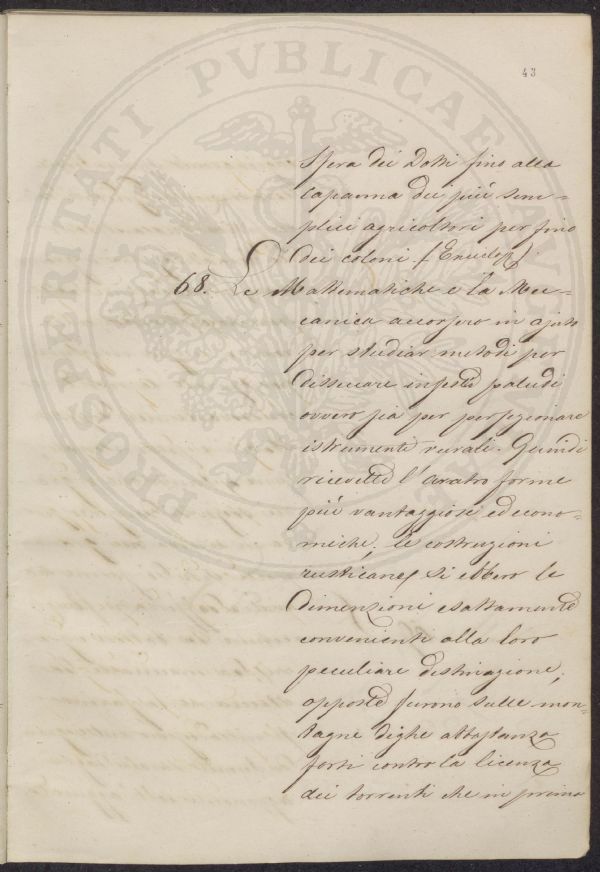 43
PROSPERITATI PVBLICAE AVGENDAE
sfera dei Dotti fino alla
capanna dei più sem=
plici agricoltori per fino
dei coloni. (Enciclop.)
68. Le Mattematiche e la Mec=
canica accorsero in ajuto
per studiar metodi per
disseccare infeste paludi
ovvero sia per perfezionare
istrumenti rurali. Quindi
ricevette l'aratro forme
più vantaggiose ed econo=
miche, le costruzioni
rusticane si ebbero le
dimenzioni esattamente
convenienti alla loro
peculiare destinazione,
opposte furono sulle mon=
tagne dighe abbastanza
forti contro la licenza
dei torrenti che in prima